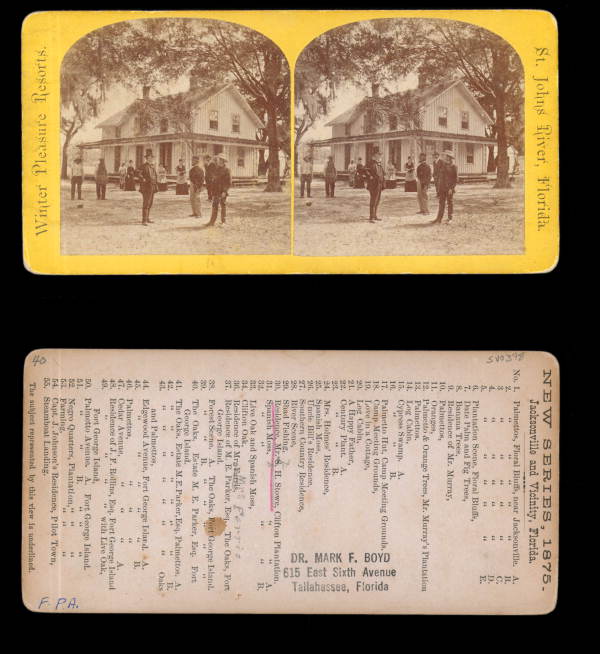 Winter Pleasure Resorts.
St. Johns River, Florida.
40
SV0398
NEW SERIES 1875.
Jacksonville and Vicinity, Florida.
No. 1. Palmettos, Floral Bluffs, near Jacksonville. A.
2. " " " " B.
3. " " " " C.
4. " " " " D.
5. " " " " E.
6. Plantation Scene, Floral Bluffs,
7. Date Palm and Fig Trees,
8. Banana Trees,
9. Residence of Mr. Murray,
10. Palmettos,
11. Oranges,
12. Palmetto & Orange Trees, Mr. Murray's Plantation
13. Palmettos.
14. Log Cabin,
15. Cypress Swamp, A.
16. " " B.
17. Palmetto Hut, Camp Meeting Grounds,
18. Camp Meeting Grounds,
19. Love in a Cottage,
20. Log Cabin,
21. A Happy Father,
22. Century Plant. A.
23. " " B.
24. Mrs. Holmes' Residence,
25. Spanish Moss,
26. Uncle Bill's Residence,
27. Southern Country Residence,
28. River Scene,
29. Shad Fishing,
30. Residence, Mr. H. Stowe, Clifton Plantation.
31. Spanish Moss, " " A.
32. " " " " B.
33. Live Oak and Spanish Moss,
34. Clifton Oak,
36. Residence of Mrs.
37. Residence of M. E. Parker, Esq. The Oaks, Fort
George Island.
38. Forest Scene. A. The Oaks, Fort George Island.
39. " " B. " " "
40. The Oaks, Estate M. E. Parker, Esq. Fort
George Island.
41. The Oaks, Estate M. E. Parker, Esq. Palmettos. A.
42. " " " " " B.
43. " " " " Oaks
and Palmettos,
44. Edgewood Avenue, Fort George Island. A.
45. " " " " B.
46. Palmettos,
47. Cedar Avenue, " " A.
48. Residence of J. F. Rollins, Esq. Fort George Island
49. " " " with Live Oak,
Fort George Island,
50. Palmetto Avenue. A. Fort George Island.
51. " " B. " "
52. Negro Quarters, Plantation, " "
53. Farming, " "
54. Capt. J. Johnson's Residence, Pilot Town,
55. Steamboat Landing.
The subject represented by this view is underlined.
DR. MARK F. BOYD
615 East Sixth Avenue
Tallahassee, Florida
F.P.A.